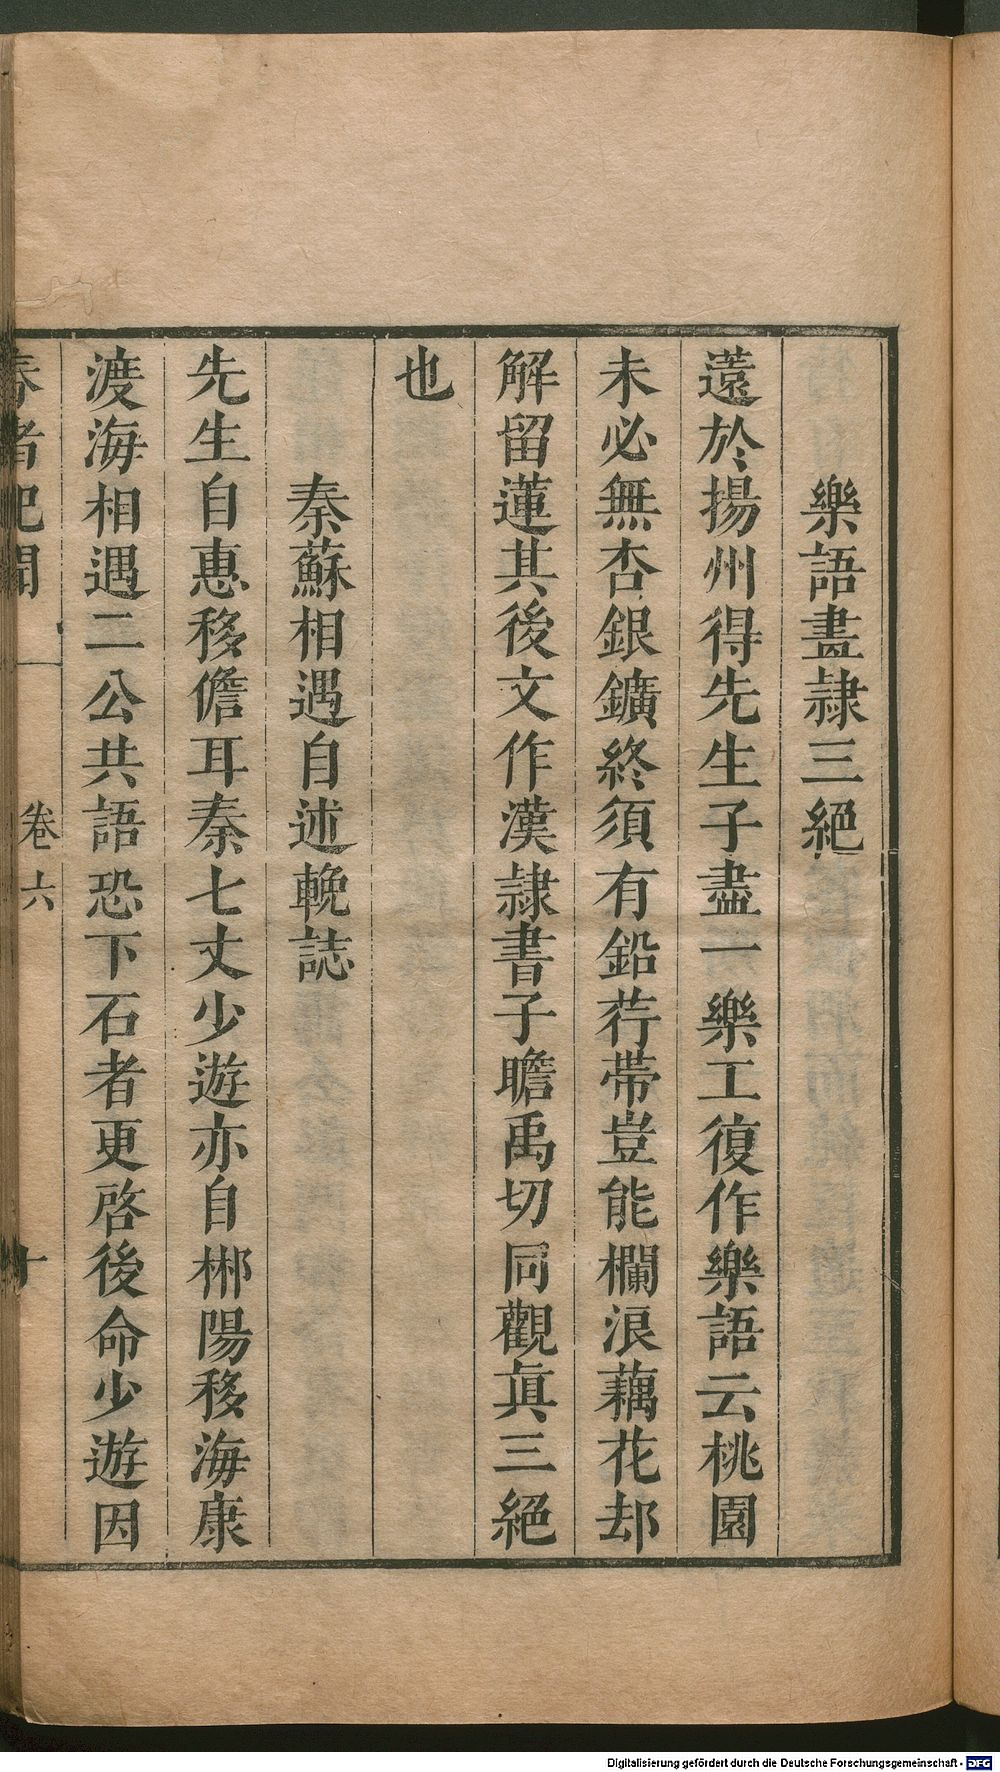 樂語畫隸三絕
薳於揚州得先生子盡一樂工復作樂語云桃園
未必無杏銀鑛終須有鉛荇帶豈能欄浪藕花却
解留蓮其後文作漢隸書子瞻禹切同觀眞三絕
也
秦蘇相遇自述輓誌
先生自惠移儋耳秦七丈少遊亦自郴陽移海康
渡海相遇二公共語恐下石者更啓後命少遊因
春者紀聞
卷六
十
Digitalisierung gefördert durch die Deutsche Forschungsgemeinschaft - DFG